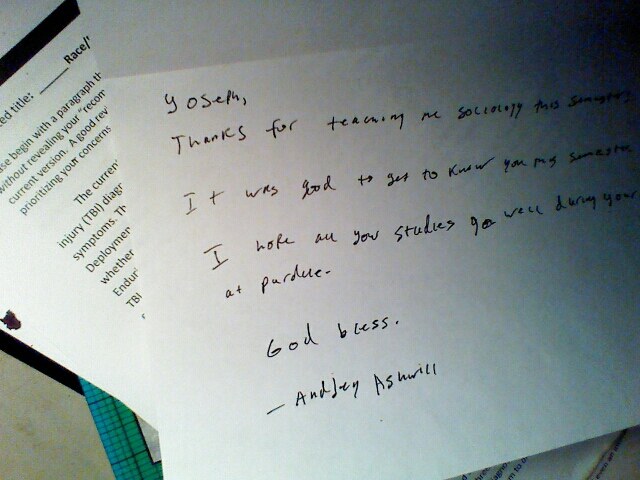 ed title: _____ Race/
se begin with a paragraph th
without revealing your "recom
current version. A good rev
prioritizing your concerns
The current
injury (TBI) diagr
symptoms. Th
Deploymen
whether
Endur
TBI
Yoseph,
Thanks for teaching me sociology this semester.
It was good to get to know you this semester
I hope all your studies go well during your
at purdue.
God bless.
- Andrey Ashwill